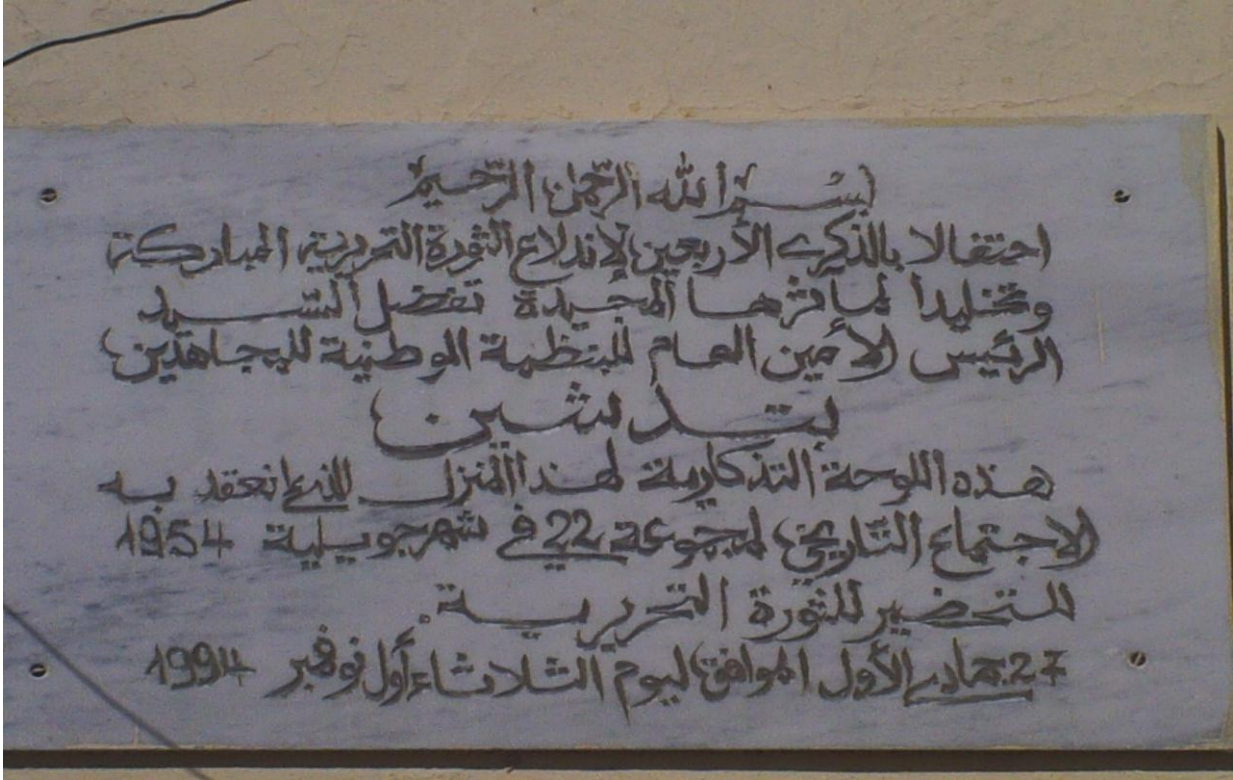 بسم الله الرحمان الرحيم
احتفالا بالذكرى الأربعين لإندلاع الثورة التحريرية المباركة
وتخليدا لمآثرها المجيدة تفضل السيد
الرئيس الأمين العام للمنظمة الوطنية للمجاهدين
بتدشين
هذه اللوحة التذكارية لهذا المنزل الذي انعقد به
الاجتماع التاريخي لمجموعة 22 في شهر جويلية 1954
للتحضير للثورة التحريرية.
27 جمادى الأول الموافق ليوم الثلاثاء أول نوفمبر 1994